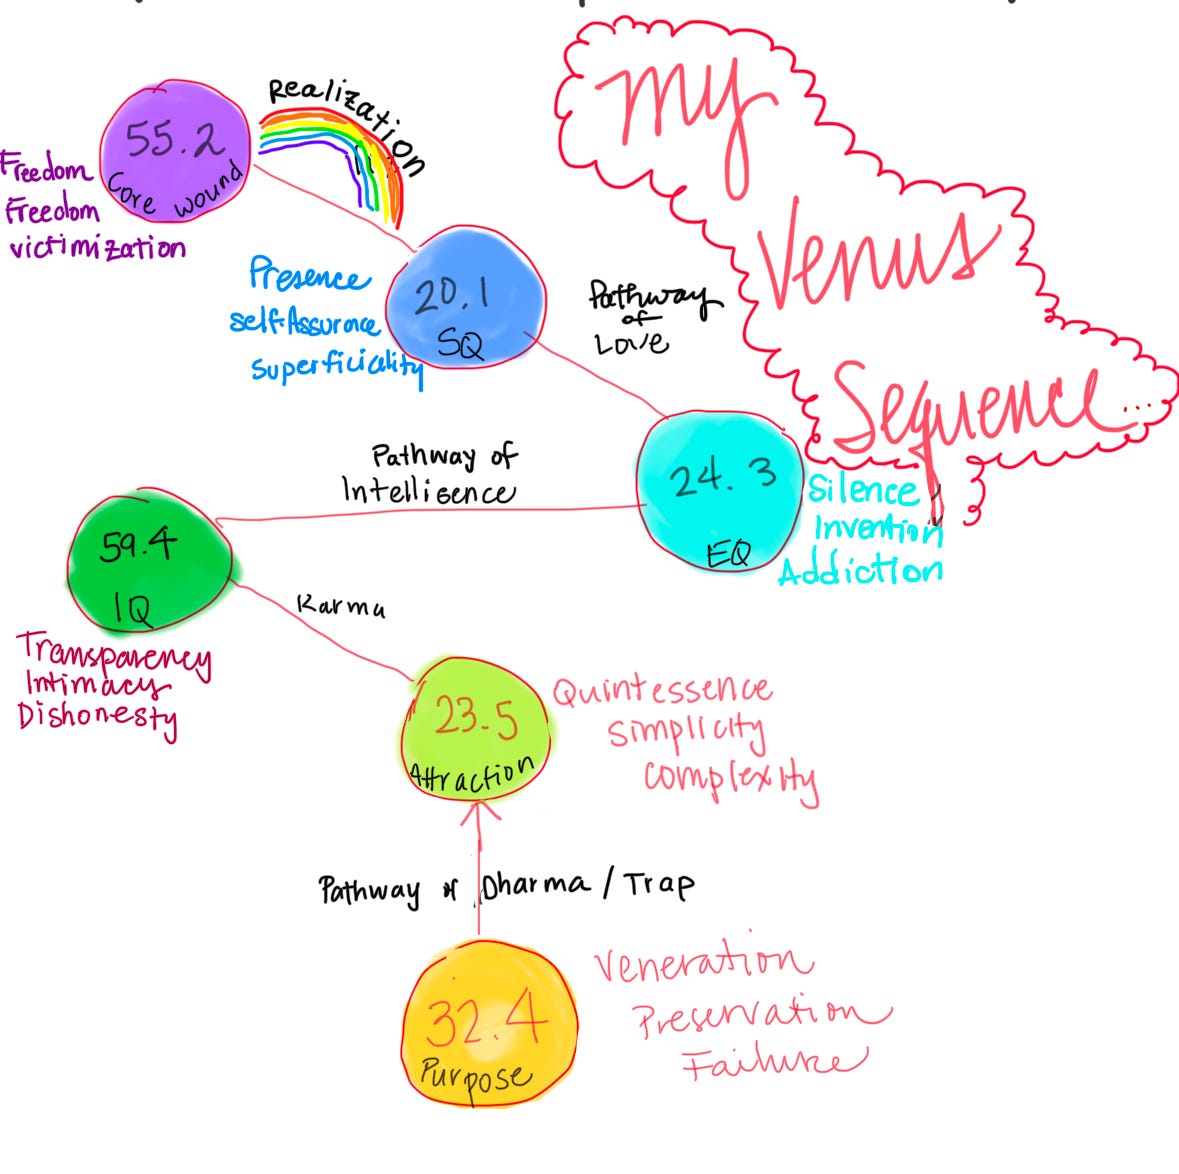 my
Venus
Sequence...
Realization
55.2
Core wound
Freedom
Freedom
victimization
20.1
SQ
Presence
self-Assurance
superficiality
Pathway
of
Love
24.3
EQ
Silence
Invention
Addiction
Pathway of
Intelligence
59.4
IQ
Transparency
Intimacy
Dishonesty
Karma
23.5
Attraction
Quintessence
simplicity
complexity
Pathway of Dharma / Trap
32.4
Purpose
Veneration
Preservation
Failure